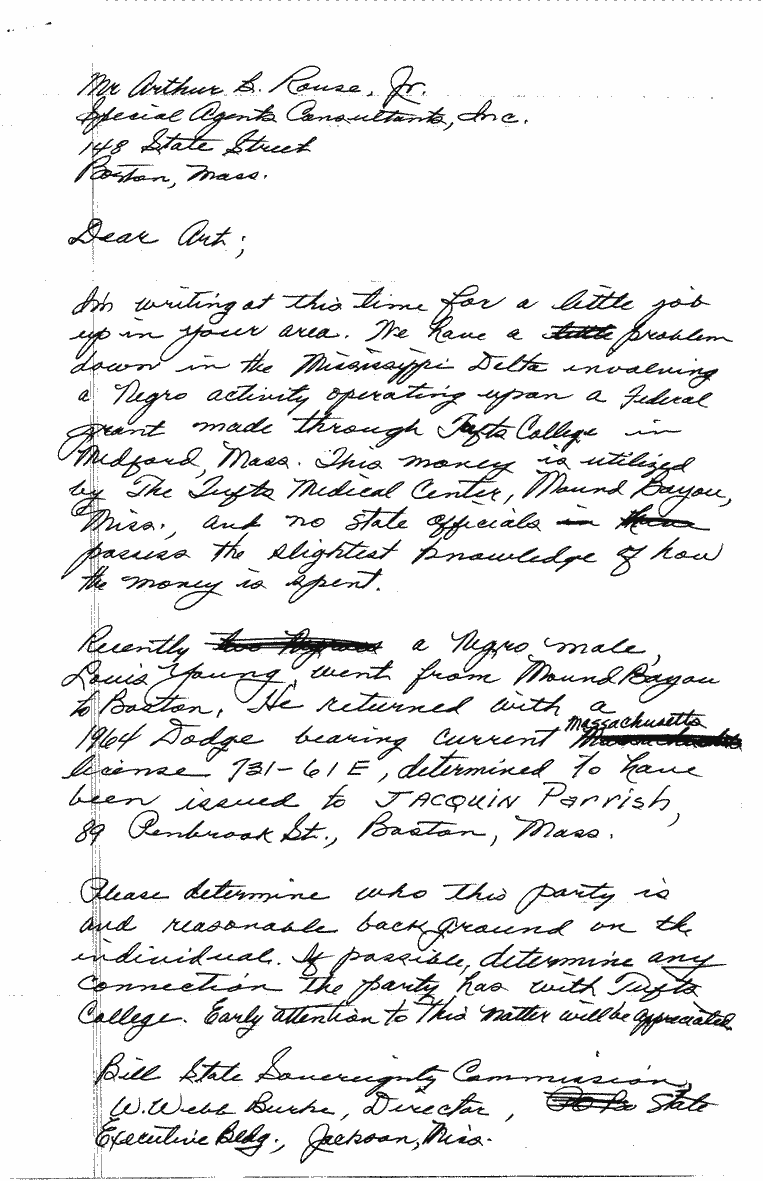 Mr Arthur B. Rouse, Jr.
Special Agents Consultants, Inc.
148 State Street
Boston, Mass.
Dear Art;
I'm writing at this time for a little job
up in your area. We have a little problem
down in the Mississippi Delta involving
a Negro activity operating upon a Federal
grant made through Tufts College in
Medford, Mass. This money is utilized
by The Tufts Medical Center, Mound Bayou,
Miss., and no State officials in
possess the slightest knowledge of how
the money is spent.
Recently two Negroes a Negro male,
Louis Young, went from Mound Bayou
to Boston. He returned with a
1964 Dodge bearing current Massachusetts
license 731-61E, determined to have
been issued to JACQUIN Parrish,
89 Penbrook St., Boston, Mass.
Please determine who this party is
and reasonable background on the
individual. If possible, determine any
connection the party has with Tufts
College. Early attention to this matter will be appreciated.
Bill State Sovereignty Commission,
W. Webb Burke, Director, State
Executive Bldg., Jackson, Miss.